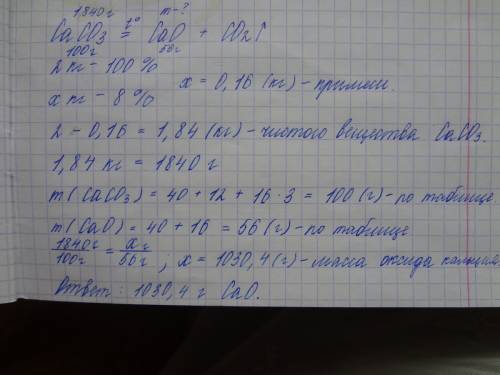 1840г m-?
CaCO3 t°= CaO + CO2↑
100г 56г
2 кг - 100%
x = 0,16 (кг) - примеси.
x кг - 8%
2 - 0,16 = 1,84 (кг) - чистого вещества CaCO3.
1,84 кг = 1840 г
m(CaCO3) = 40 + 12 + 16·3 = 100 (г) - по таблице.
m(CaO) = 40 + 16 = 56 (г) - по таблице
1840г/100г = xг/56г, x = 1030,4 (г) - масса оксида кальция.
Ответ: 1030,4 г CaO.